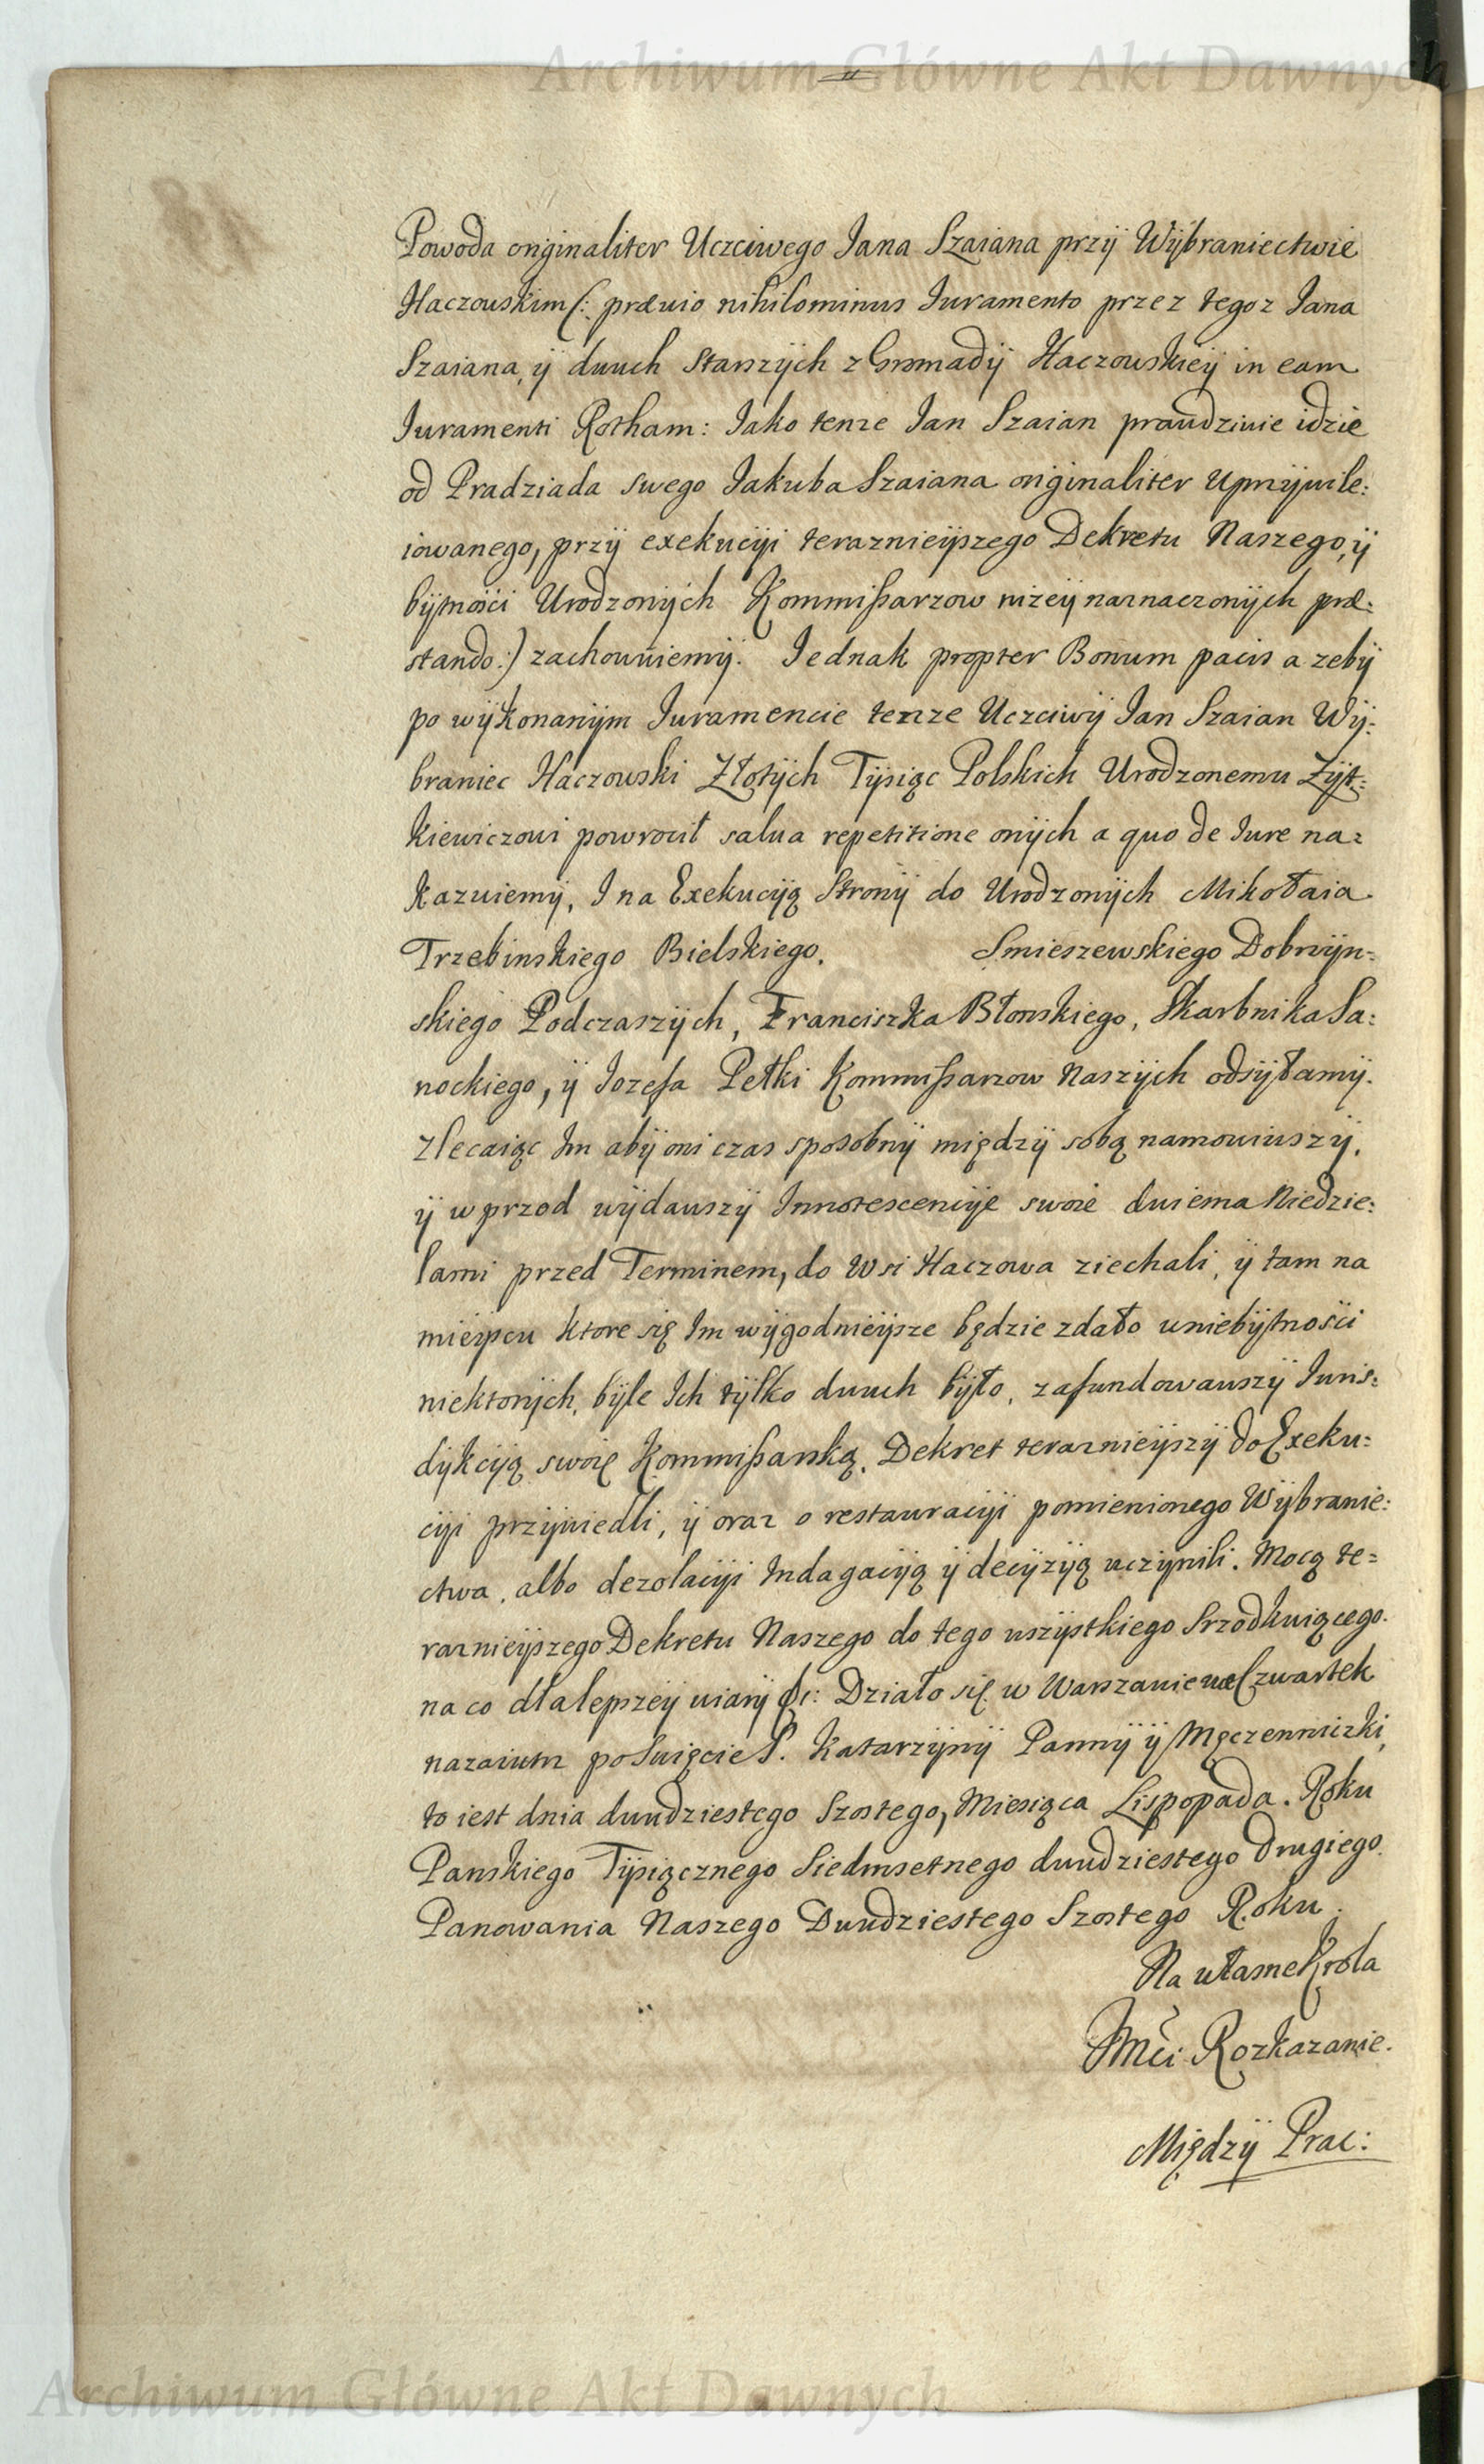 Archiwum Główne Akt Dawnych
Powoda originaliter Uczciwego Jana Szaiana przÿ Wÿbraniectwie
Haczowskim (: prævio nihilominus Juramento przez tegoz Jana
Szaiana, ÿ dwuch Starszÿch z Gromadÿ Haczowskieÿ in eam
Juramenti Rotham: Jako tenze Jan Szaian prawdziwie idzie
od Pradziada swego Jakuba Szaiana originaliter Uprzÿwile:
iowanego, przÿ exekucÿi teraznieÿszego Dekretu Naszego, ÿ
bÿtnosci Urodzonÿch Kommissarzow nizeÿ naznaczonÿch præ:
stando:) zachowuiemÿ. Jednak propter Bonum pacis a zebÿ
po wÿkonanÿm Juramencie tenze Uczciwÿ Jan Szaian Wÿ:
braniec Haczowski Złotÿch Tÿsiąc Polskich Urodzonemu Zÿt:
kiewiczowi powrocił salva repetitione onÿch a quo de Jure na:
kazuiemÿ, I na Exekucÿą Stronÿ do Urodzonÿch Mikołaia
Trzebinskiego Bielskiego, Smieszewskiego Dobrzÿn:
skiego Podczaszÿch, Franciszka Błonskiego, Skarbnika Sa:
nockiego, ÿ Jozefa Pełki Kommissarzow Naszÿch odsÿłamÿ.
Zlecaiąc Im abÿ oni czas sposobnÿ międzÿ sobą namowiwszÿ,
ÿ wprzod wÿdawszÿ Innotescencÿe swoie dwiema Niedzie:
lami przed Terminem, do Wsi Haczowa ziechali, ÿ tam na
mieÿscu ktore się Im wÿgodnieÿsze będzie zdało w niebÿtnosci
niektorÿch, bÿle Ich tÿlko dwuch bÿło, zafundowawszÿ Juris:
dÿkcÿą swoię Kommissarską, Dekret teraznieÿszÿ do Exeku:
cÿi przÿwiedli, ÿ oraz o restauracÿi pomienionego Wÿbranie:
ctwa, albo dezolacÿi Indagacÿą ÿ decÿzÿą uczÿnili. Mocą te=
raznieÿszego Dekretu Naszego do tego wszÿstkiego srzodkuiącego.
na co dla lepszeÿ wiarÿ &c: Działo się w Warszawie we Czwartek
nazaiutrz po Swięcie S. Katarzÿnÿ Pannÿ ÿ Męczenniczki,
to iest dnia dwudziestego Szostego, Miesiąca Listopada. Roku
Panskiego Tÿsiącznego Siedmsetnego dwudziestego Drugiego.
Panowania Naszego Dwudziestego Szostego Roku.
Na własne Krola
JMci Rozkazanie.
Międzÿ Prac:
Archiwum Główne Akt Dawnych